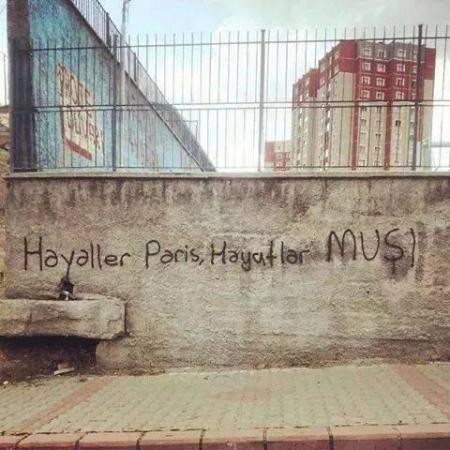 Hayaller Paris, Hayatlar MUŞ!